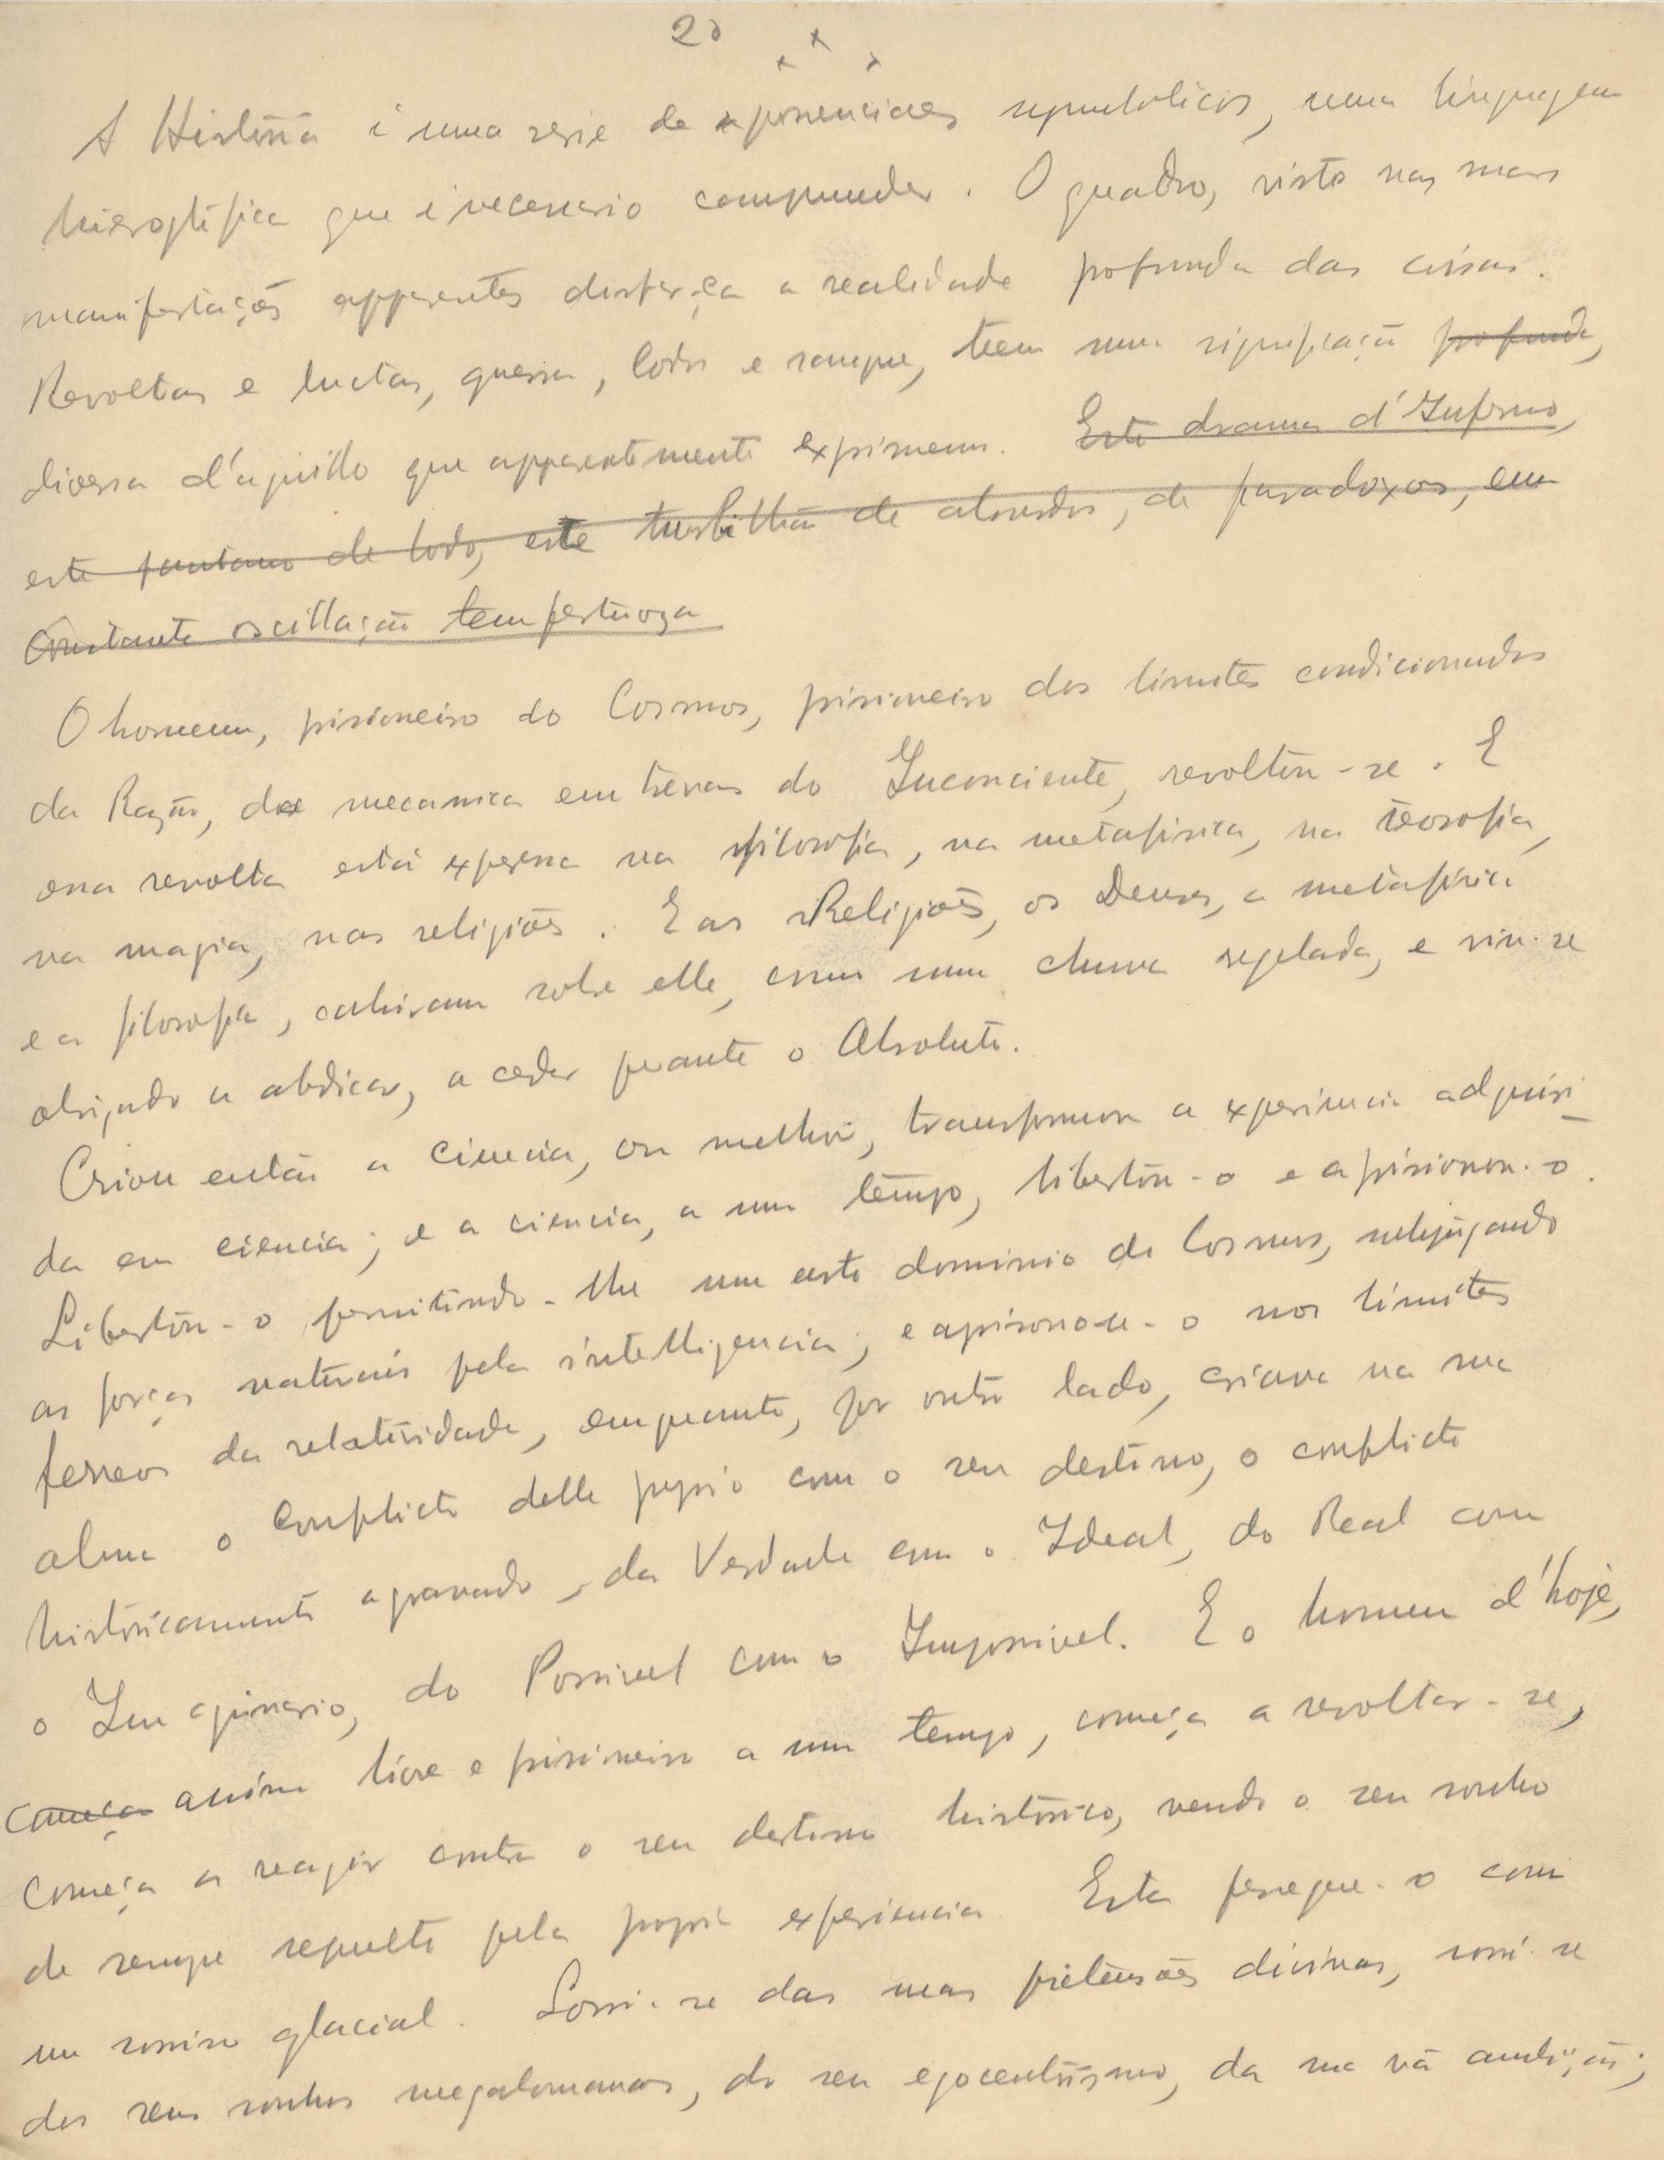 20
A História é uma serie de exponenciaes symbolicos, uma linguagem
hieroglifica que é necessario comprender. O quadro, visto nas suas
manifestações apparentes disfarça a realidade profunda das coisas.
Revoltas e luctas, guerra, lodo e sangue, teem uma significação profunda,
diversa d'aquillo que apparentemente exprimem. Este drama d'Inferno,
este pantano de lodo, este turbilhão de absurdos, de paradoxos, em
constante oscillação tempestuoza
O homem, prisioneiro do Cosmos, prisioneiro dos limites condicionados
da Razão, da mecanica em trevas do Inconciente, revoltou-se. E
essa revolta está expressa na filosofia, na metafisica, na teosofia,
na magia, nas religiões. E as Religiões, os Deuses, a metafisica
e a filosofia, cahiram sobre elle, como uma chuva regelada, e viu-se
obrigado a abdicar, a ceder perante o Absoluto.
Criou então a ciencia, ou melhor, transformou a experiencia adquiri-
da em ciencia; e a ciencia, a um tempo, libertou-o e aprisionou-o.
Libertou-o permitindo-lhe um certo dominio do Cosmos, subjugando
as forças naturais pela intelligencia; e aprisionou-o nos limites
ferreos da relatividade, emquanto, por outro lado, criava na sua
alma o conflicto delle proprio com o seu destino, o conflicto
históricamente agravado, da Verdade com o Ideal, do Real com
o Imaginario, do Possivel com o Impossivel. E o homem d'hoje,
começa assim livre e prisioneiro a um tempo, começa a revoltar-se,
começa a reagir contra o seu destino histórico, vendo o seu sonho
de sempre sepulto pela propria experiencia. Esta persegue-o com
um sorriso glacial. Sorri-se das suas pretensões divinas, sorri-se
dos seus sonhos megalomanos, do seu egocentrismo, da sua vã ambição;